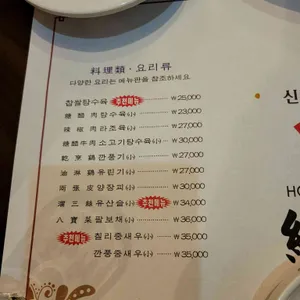 料理類 · 요리류
다양한 요리는 메뉴판을 참조하세요.
찹쌀탕수육 추천메뉴 ₩25,000
糖醋肉탕수육(小) ₩23,000
辣椒肉라조육(小) ₩27,000
糖醋牛肉소고기탕수육(小) ₩30,000
乾烹鷄깐풍기(小) ₩27,000
油淋鷄유린기(小) ₩27,000
兩張皮양장피(小) ₩30,000
溜三絲유산슬(小) 추천메뉴 ₩34,000
八寶菜팔보채(小) ₩36,000
추천메뉴 칠리중새우(小) ₩35,000
깐풍중새우(小) ₩35,000
신
HO